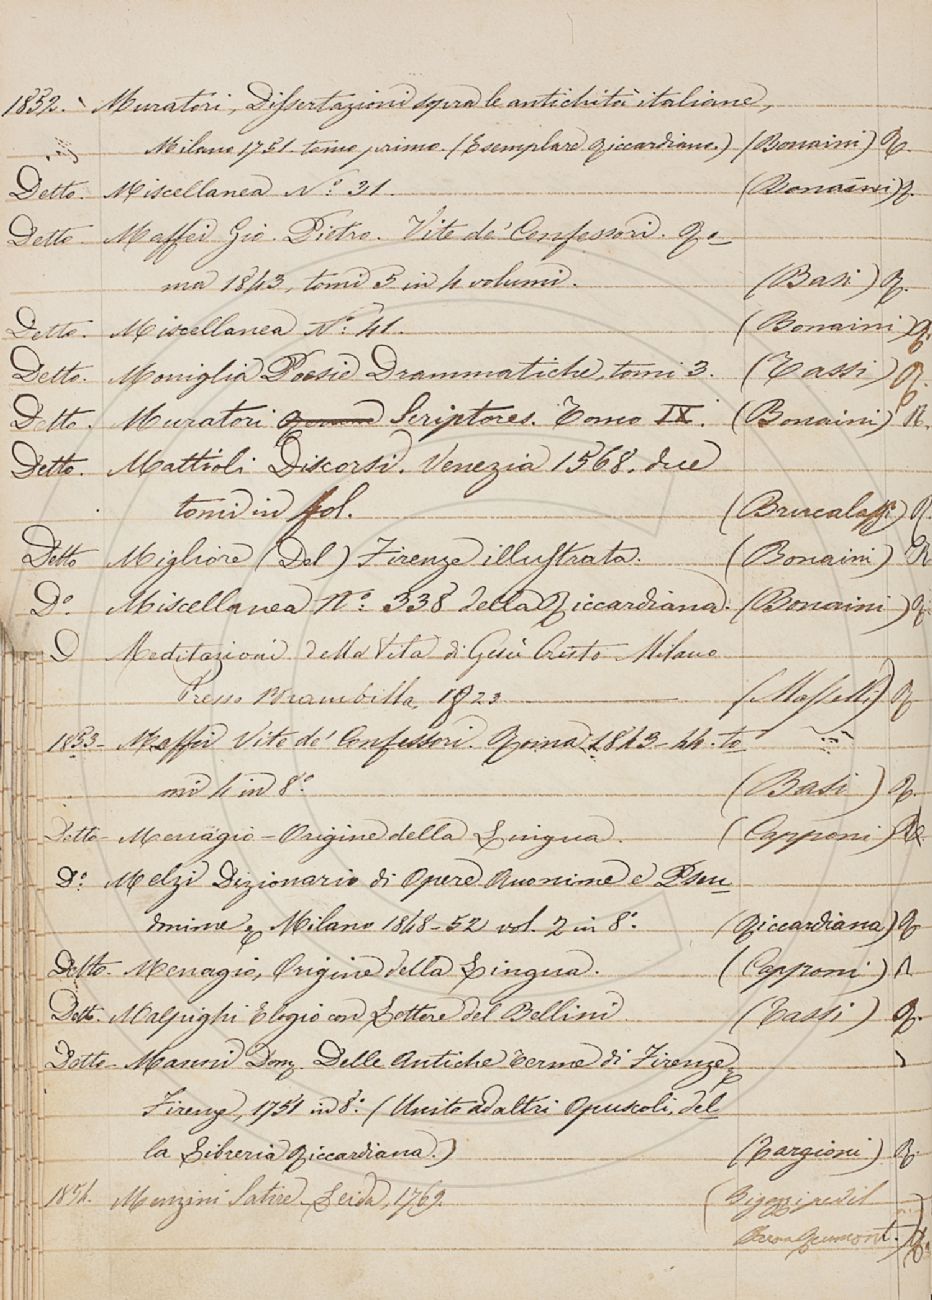 1852. Muratori, Dissertazioni sopra le antichità italiane,
Milano 1751. tomo primo. (Esemplare Riccardiano) (Bonaini) R.
Detto. Miscellanea N.º 31. (Bonaini) R.
Detto Maffei Gio. Pietro. Vite de' Confessori. Ro=
ma 1843, tomi 5 in 4 volumi. (Basi) R.
Detto. Miscellanea N.º 41. (Bonaini) R.
Detto. Moniglia Poesie Drammatiche, tomi 3. (Tassi) R.
Detto. Muratori Scriptores. Tomo IX. (Bonaini) R.
Detto. Mattioli Discorsi. Venezia 1568. due
tomi in fol. (Brucalassi) R.
Detto Migliore (Del) Firenze illustrata. (Bonaini) R
Dº. Miscellanea Nº. 338 della Riccardiana. (Bonaini) R.
D Meditazioni della Vita di Gesù Cristo Milano
Presso Brambilla, 1823 (Masselli) R
1853 - Maffei Vite de' Confessori. Roma 1843-44. to=
mi 4 in 8.º (Basi) R.
Detto Menagio - Origine della Lingua. (Capponi) R.
D.º Melzi Dizionario di Opere Anonime e Pseu=
donime, Milano 1848-52 vol. 2 in 8.º (Riccardiana) R
Detto - Menagio, Origine della Lingua. (Capponi) R
Detto. Malpighi Elogio con Lettere del Bellini (Tassi) R.
Detto - Manni Dom. Delle Antiche Terme di Firenze,
Firenze, 1751 in 8.º (Unito ad altri Opuscoli, del=
la Libreria Riccardiana.) (Targioni) R.
1854. Menzini Satire. Leida, 1769. (Bigazzi
R.